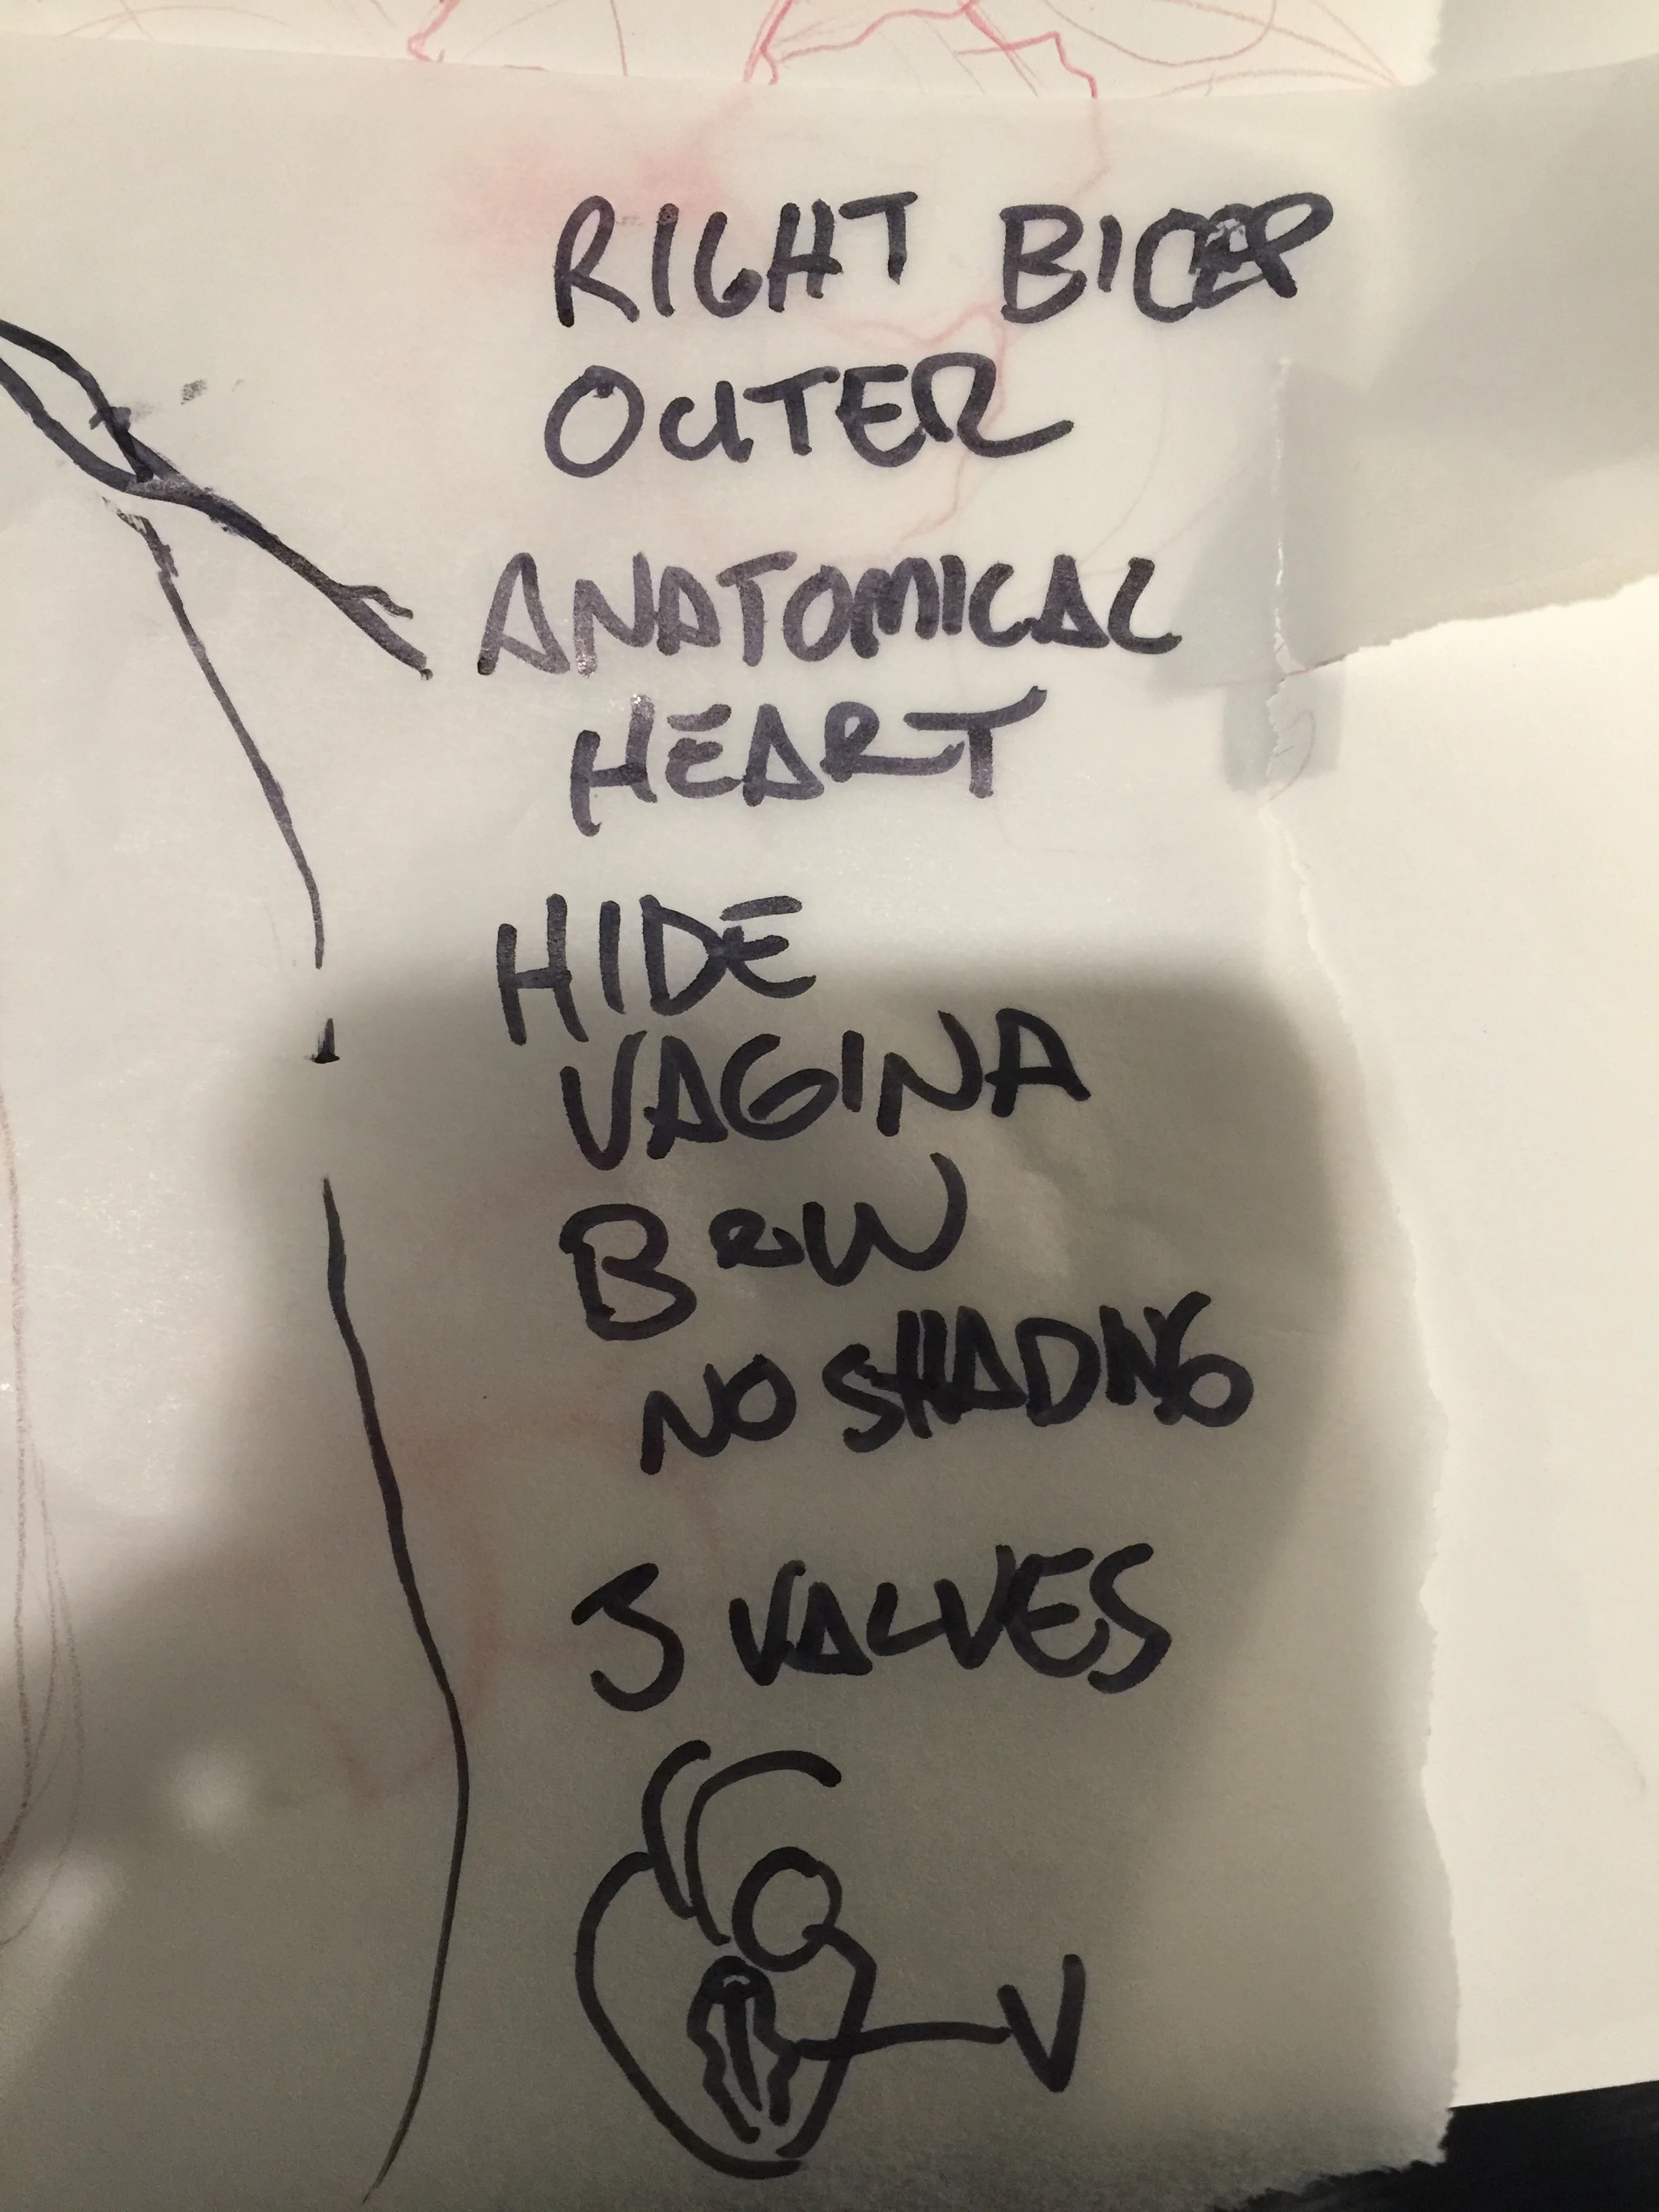 RIGHT BICEP
OUTER
ANATOMICAL
HEART
HIDE
VAGINA
B&W
NO SHADNG
3 VALVES
V